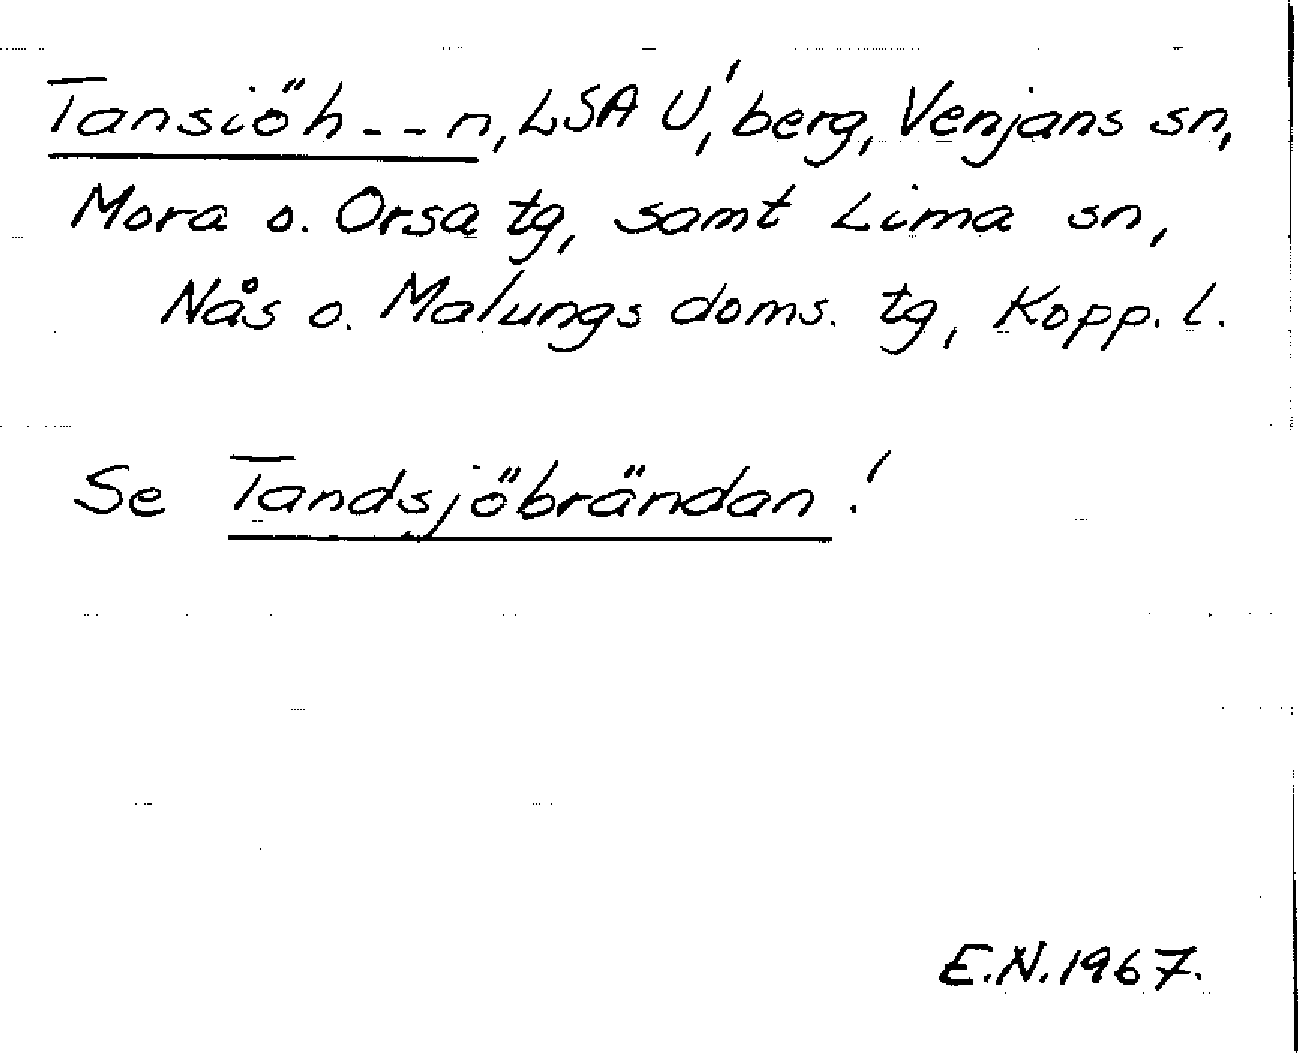 Tansiöh--n, LSA U!, berg, Venjans sn,
Mora o. Orsa tg, samt Lima sn,
Nås o. Malungs doms. tg, Kopp. l.
Se Tandsjöbrändan!
E.N. 1967.